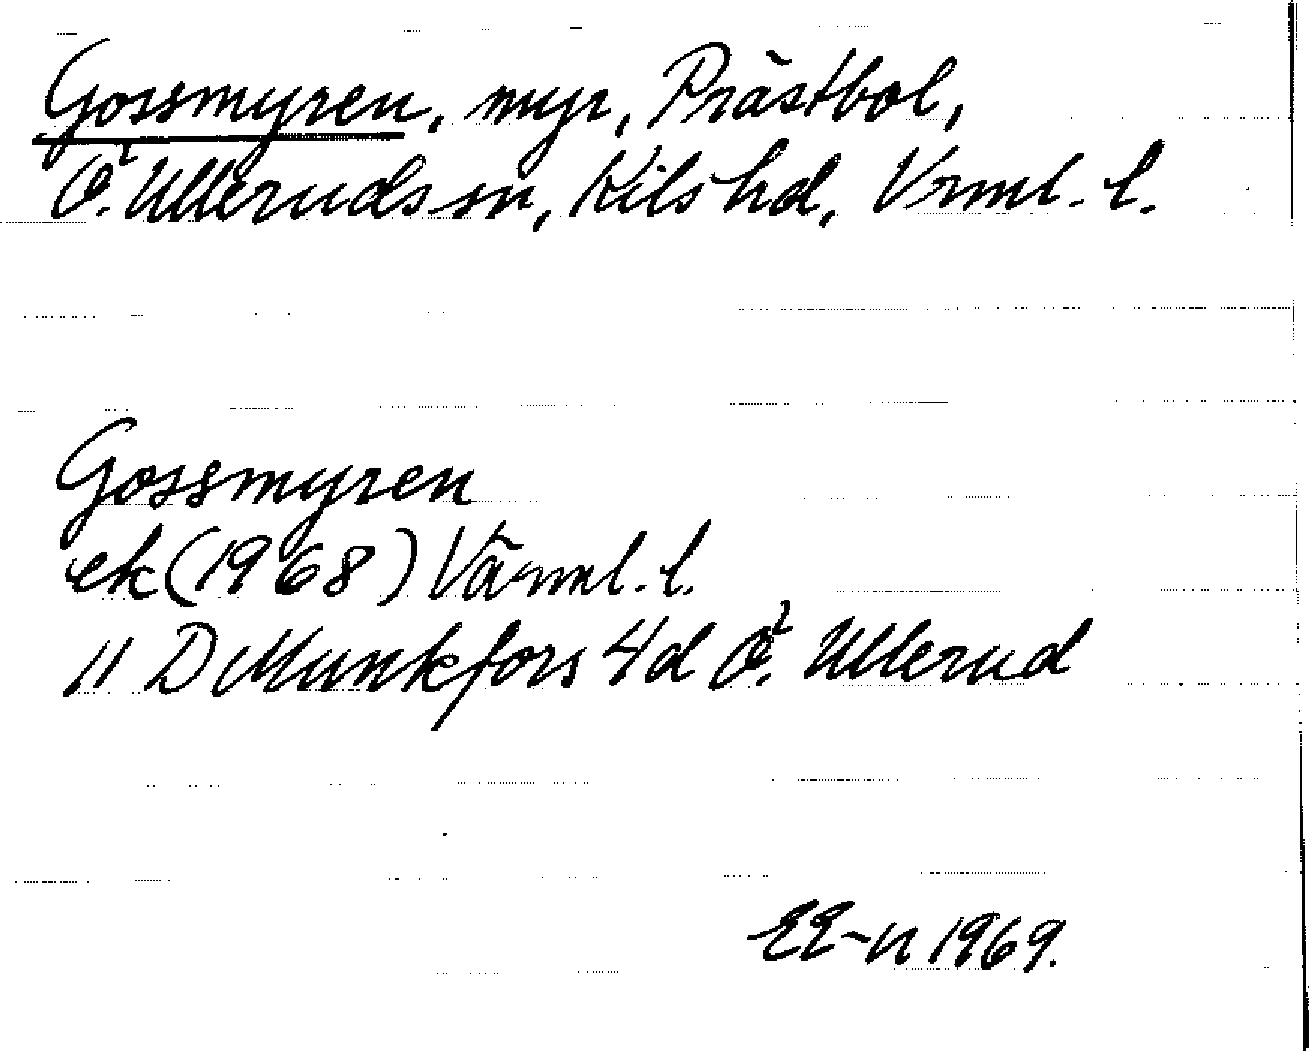 Gossmyren, myr, Prästbol,
Ö. Ullerudssn, Kils hd, Vrml. l.
Gossmyren
ek (1968) Värml. l.
11 D Munkfors 4d Ö. Ullerud
EE-n 1969.